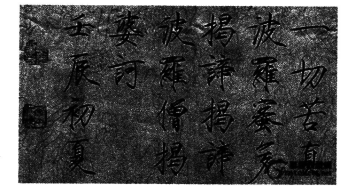 一切苦真
波羅蜜咒
揭諦揭諦
波羅僧揭
婆訶
壬辰初夏